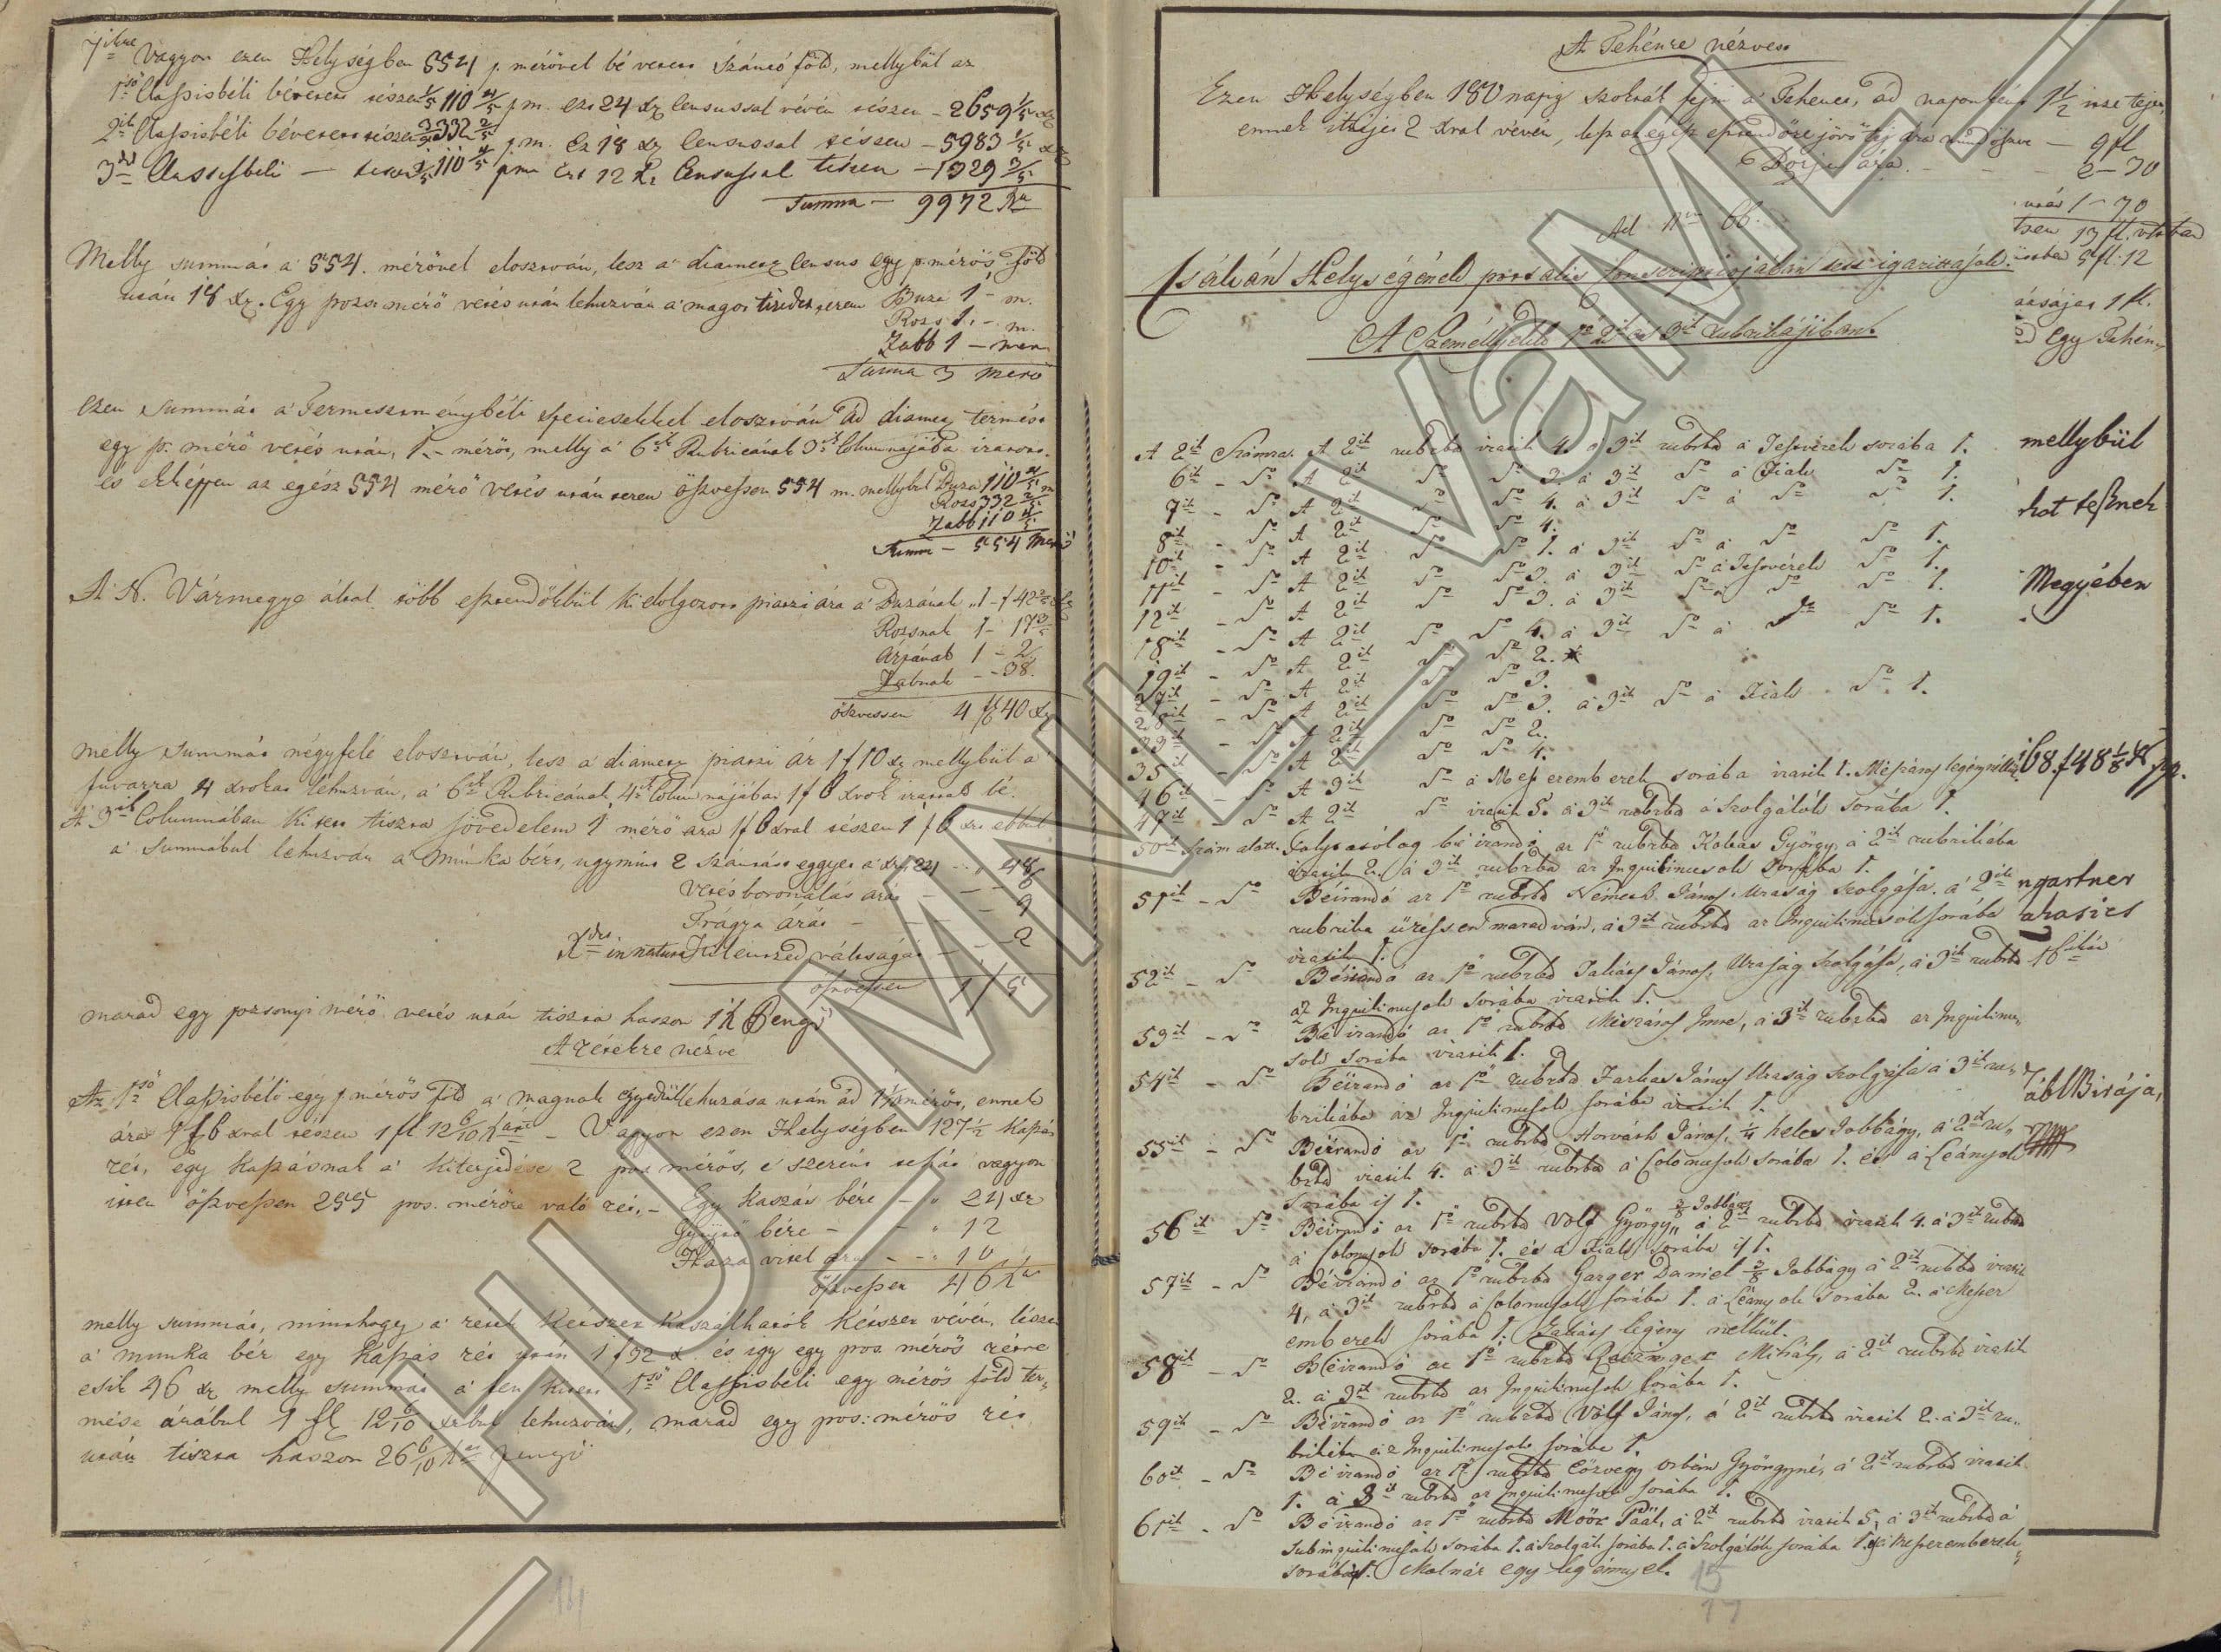 7ikre Vagyon ezen Helységben 554 p. mérővel bé vetett Szántó föld, mellybül az
1ső Classisbéli bévetett részen 1/5 110 4/5 p.m. ezt 24 xr Censussal vévén tészen – 2659 1/5 xr
2ik Classisbéli bévetett részen 3/5 332 2/5 p.m. Ez 18 xr Censussal tészen – 5983 1/5 xr
3dik Classisbeli – teszen 1/5 110 4/5 p.m. Ezt 12 xr Censussal tészen – 1329 3/5
Summa – 9972 Xr
Melly summát a 554. mérővel elosztván, lesz a diametz Census egy p. mérős föld
után 18 xr. Egy pozsoni mérő vetés után lehuzván a magot tizedet, terem Buza 1 – m.
Rozs 1. – m.
Zabb 1 – mérő
Summa 3 mérő
ezen Summát a Termesztménybéli speciesekkel elosztván ád diametz termést
egy p. mérő vetés után, 1. – mérőt, melly a 6ik Rubricának 3ik Columnájába iratott.
és ekképpen az egész 554 mérő vetés után terem öszvessen 554 m. mellybül Buza 110 4/5 m
Rozs 332 2/5
Zabb 110 4/5
Summa – 554 Mérő
A N. Vármegye által több esztendőkbül kidolgozott piatzi ára a Buzának 1 – f 42
Rozsnak 1 – 17
Árpának 1 – 2
Zabnak – – 38.
öszvessen 4 f 40 xr
melly summát négyfelé elosztván, lesz a diametz piatzi ár 1 f 10 xr mellybül a
fuvarra 4 xrokat lehuzván, a 6ik Rubricának 4ik Columnájába 1 f 6 xrok irattak bé.
A 3ik Columnában kitett tiszta jövedelem 1 mérő ára 1 f 6 xral tészen 1 f 6 xrt ebbül
a Summábul lehuzván a munka bért, ugymint 2 szántást eggyet a xr 24 – 48
Vetésboronálás árát – – 6
Tragya árát – – 9
Xdes in natura Kilentzed váltságát – – 2
öszvessen 1 f 5
marad egy pozsonyi mérő vetés után tiszta haszon 1 X Pengő
A rétekre nézve
Az 1ső Classisbéli egy p. mérős Föld a magnak egyedül lehuzása után ád 1 mérőt, ennek
ára 1 f 6 xral tészen 1 fl 12 6/10 Xár – Vagyon ezen Helységben 127 1/2 kapás
rét, egy kapásnak a kiterjedése 2 pos mérős, e szerint tehát vagyon
itten öszvessen 255 pos. mérőre való rét. – Egy kaszás bére – „ 24 xr
Gyüjtő bére – – „ 12
Haza vitel ára – – „ 10
öszvessen 46 Xr
melly summát, minthogy a rétek kétszer kaszálhatók kétszer vévén, tészen
a munka bér egy kapás rét után 1 f 32 x és igy egy pos mérős rétre
esik 46 xr melly summát a fen kitett 1ső Classisbéli egy mérős föld ter-
mése árábul 1 fl 12 6/10 xrbul lehuzván, marad egy pos: mérős rét
után tiszta haszon 26 6/10 Xr pengő
14
A Tehénre nézve
Ezen Helységben 180 napig szokták fejni a Tehenet, ád naponként 1 1/2 itze tejet,
ennek itzéjét 2 xral vévén, lesz az egész esztendőre jövő tej ára – 9 fl
Borju ára. – – – 2 – 30
1 – 30
13 fl. váltóban
5 fl. 12
1 fl.
egy Tehén
mellybül
hat tesznek
Megyében
168. f 48 1/8 Xr pp.
táblBirája,
Ad Num 66.
Csátván Helységének portális Conscriptiójában tett igazitások.
A Személyekk 1ő 2ik és 3ik rubrikájiban.
A 2ik Számra. A 2ik rubrkb irasik 4. a 3ik rubrkb a Testvérek sorába 1.
6ik – So A 2ik So So 3. a 3ik So a Fiak So 1.
7ik – So A 2ik So So 4. a 3ik So a So So 1.
8ik – So A 2ik So So 4.
10ik – So A 2ik So So 1. a 3ik So a So So 1.
11ik – So A 2ik So So 3. a 3ik So a Testvérek So 1.
12ik – So A 2ik So So 3. a 3ik So a So So 1.
18ik – So A 2ik So So 4. a 3ik So a So So 1.
19ik – So A 2ik So So 2.
27ik – So A 2ik So So 3.
28ik – So A 2ik So So 3. a 3ik So a Fiak So 1.
33ik – So A 2ik So So 2.
35ik – So A 2ik So So 4.
46ik – So A 3ik So a Mesteremberek sorába irasik 1. Mészáros legény nélkül
47ik – So A 2ik So irasik 5. a 3ik rubrkb a Szolgálók sorába 1.
50ik Szám alatt. Folytatólag bé irandó az 1ő rubrkb Kovács György, a 2ik rubrikába
irasik 2. a 3ik rubrkba az Inquilinusok sorába 1.
51ik – So Béirandó az 1ő rubrkb Németh János, Uraság szolgája. a 2ik
rubrika üressen maradván, a 3ik rubrkb az Inquilinusok sorába
irasik 1.
52ik – So Béirandó az 1ő rubrkb Takács János, Uraság Szolgája, a 3ik rubrkb
az Inquilinusok sorába irasik 1.
53ik – So Bé irandó az 1ő rubrkb Mészáros Imre, a 3ik rubrkb az Inquilinu-
sok sorába irasik 1.
54ik – So Béirandó az 1ő rubrkb Farkas János Uraság szolgája a 3ik ru-
brikába az Inquilinusok sorába irasik 1.
55ik – So Béirandó az 1ő rubrkb Horváth János, 1/4 helyes Jobbágy, a 2ik ru-
brkb irasik 4. a 3ik rubrkb a Colonusok sorába 1. és a Leányok
Sorába is 1.
56ik So Béirandó az 1ő rubrkb Volf György 3/8 Jobbágy, a 2ik rubrkb irasik 4. a 3ik rubrkb
a Colonusok sorába 1. és a Fiak sorába is 1.
57ik – So Béirandó az 1ő rubrkb Garger Daniel 3/8 Jobbágy a 2ik rubrkb irasik
4, a 3ik rubrkb a Colonusok sorába 1. a Leányok sorába 2. a Mester
emberek sorába 1. Takács legény nélkül.
58ik – So Béirandó az 1ő rubrkb Mihály, a 2ik rubrkb irasik
2. a 3ik rubrkb az Inquilinusok sorába 1.
59ik – So Béirandó az 1ő rubrkb Volf János, a 2ik rubrkb irasik 2. a 3ik ru-
brikába az Inquilinusok sorába 1.
60ik – So Bé irandó az 1ő rubrkb Eözvegy Orbán Györgyné, a 2ik rubrkb irasik
1. a 3ik rubrkb az Inquilinusok sorába 1.
61ik – So Béirandó az 1ő rubrkb Moór Paál, a 2ik rubrkb irasik 5, a 3ik rubrkb a
Subinquilinusok sorába 1. a Szolgák sorába 1. a Szolgálók sorába 1. és a Mesteremberek
sorába 1. Molnár egy legénnyel.
15
17
HU MNL VaML